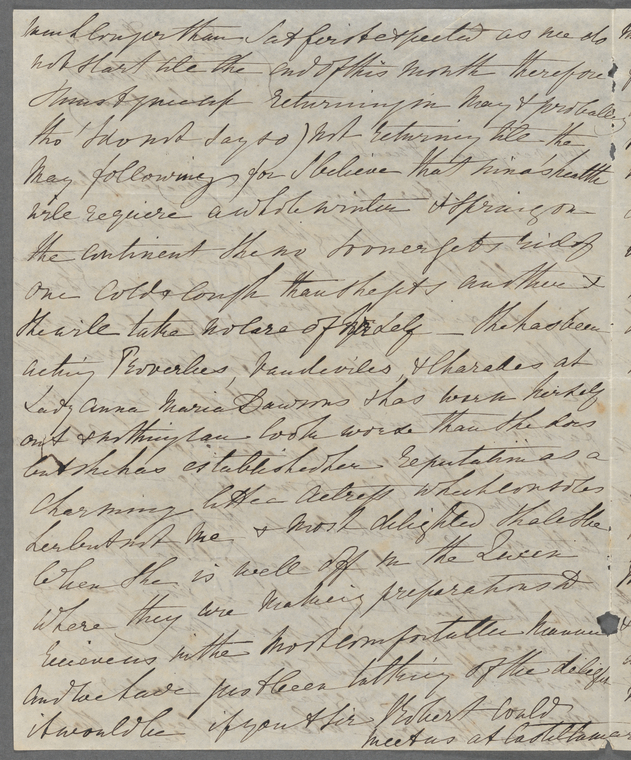 much longer than I at first expected as we do
not start till the end of this month therefore
I must give up returning in May & probably
tho' I do not say so) not returning till the
May following, for I believe that Nina's health
will require a whole winter & Spring on
the continent She no sooner gets rid of
one cold & cough than she gets another &
She will take no care of herself — She has been
acting Proverbs, Vaudeviles, & Charades at
Lady Anna Maria Dawsons & has worn herself
out & nothing can look worse than she does
but she has established her reputation as a
Charming little Actress which consoles
her but not me & most delighted shall I be
When she is well off in the Queen
Where they are making preparations to
receive us in the most comfortable manner
and we have just been talking of the delight
it would be if you & Sir Robert could
meet us at Castellamare